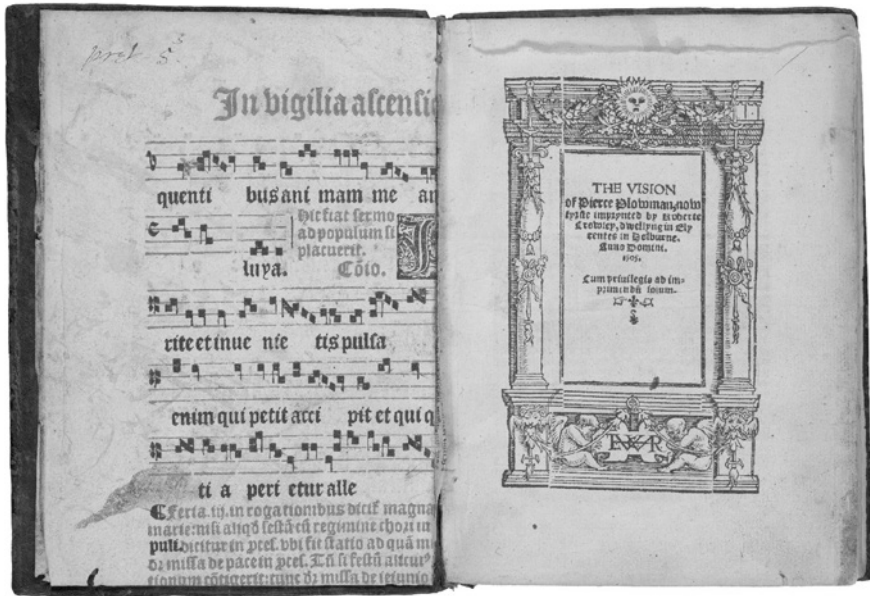 In vigilia ascensio
quenti bus ani mam me am
Hic fiat sermo
ad populum si
placuerit.
luya. Cõio.
rite et inue nie tis pulsa
enim qui petit acci pit et qui q
ti a peri etur alle
Feria .iij. in rogationibus dicit̃ magna
marie: nisi aliqd̃ festũ cũ regimine chori in
puli. dicitur in ꝓcef. vbi fit statio ad quã m
dr̃ missa de pace in ꝓcef. Et̃ si festũ alicui⁹
tionum cõtigerit: tunc dr̃ missa de ieiunio
THE VISION
of Pierce Plowman, now
fyrste imprynted by Roberte
Crowley, dwellyng in Ely
rentes in Holburne.
Anno Domini.
1505.
Cum priuilegio ad im-
primendũ solum.